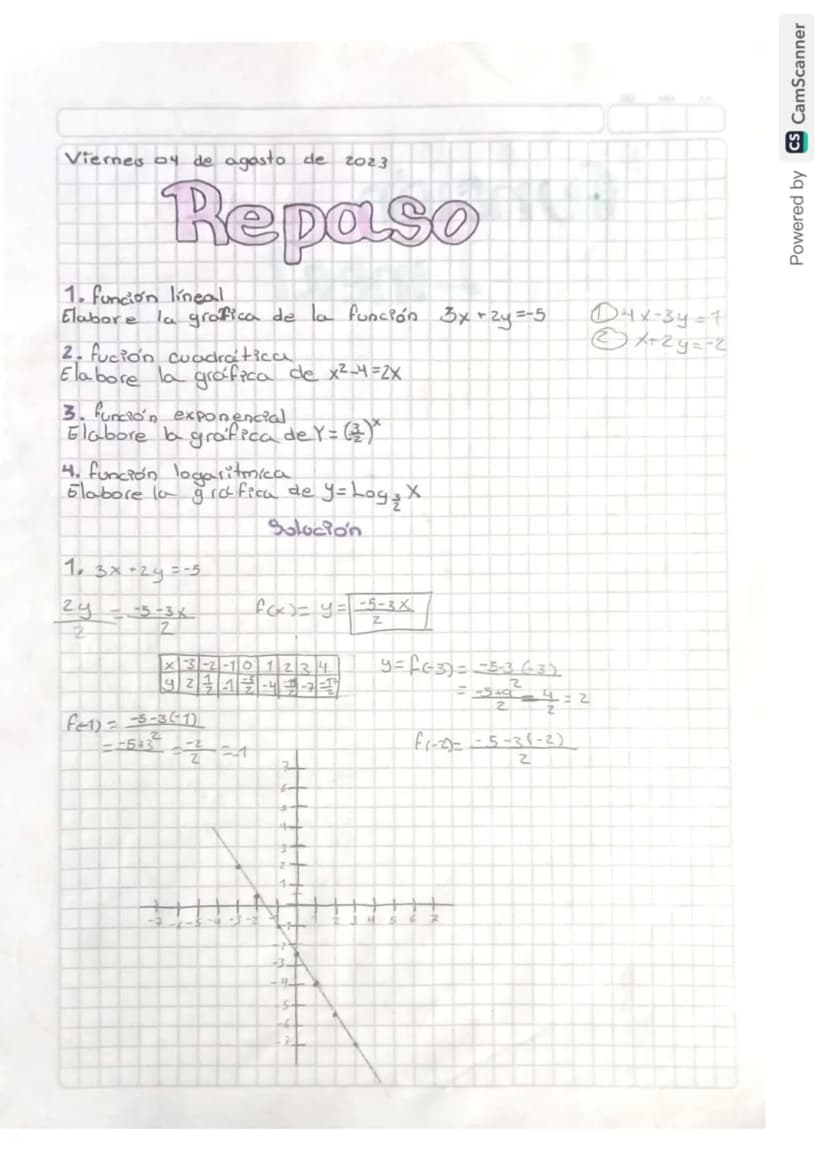 Viernes 04 de agosto de 2023
Repaso
1. función líneal
Elabore la grafica de la función 3x+2y=-5
① 4x-3y=1
② x+2y=-2
2. fución cuadrática
Elabore la gráfica de x²-4=2x
3. función exponencial
Elabore la gráfica de Y=(3/2)^x
4. función logaritmica
Elabore la gráfica de y=Log_3/2 X
Solución
1. 3x+2y=-5
2y/2 = -5-3x/2
f(x)= y= -5-3x/2
x -3 -2 -1 0 1 2 3 4
y 2 1/2 -1 -5/2 -4 -11/2 -7 -17/2
y= f(-3)= -5-3(-3)/2
= -5+9/2 = 4/2 = 2
f(-1) = -5-3(-1)/2
= -5+3/2 = -2/2 = -1
f(-2)= -5-3(-2)/2
7
6
5
4
3
2
1
-7 -6 -5 -4 -3 -2 -1 1 2 3 4 5 6 7
-1
-2
-3
-4
-5
-6
-7
Powered by CS CamScanner